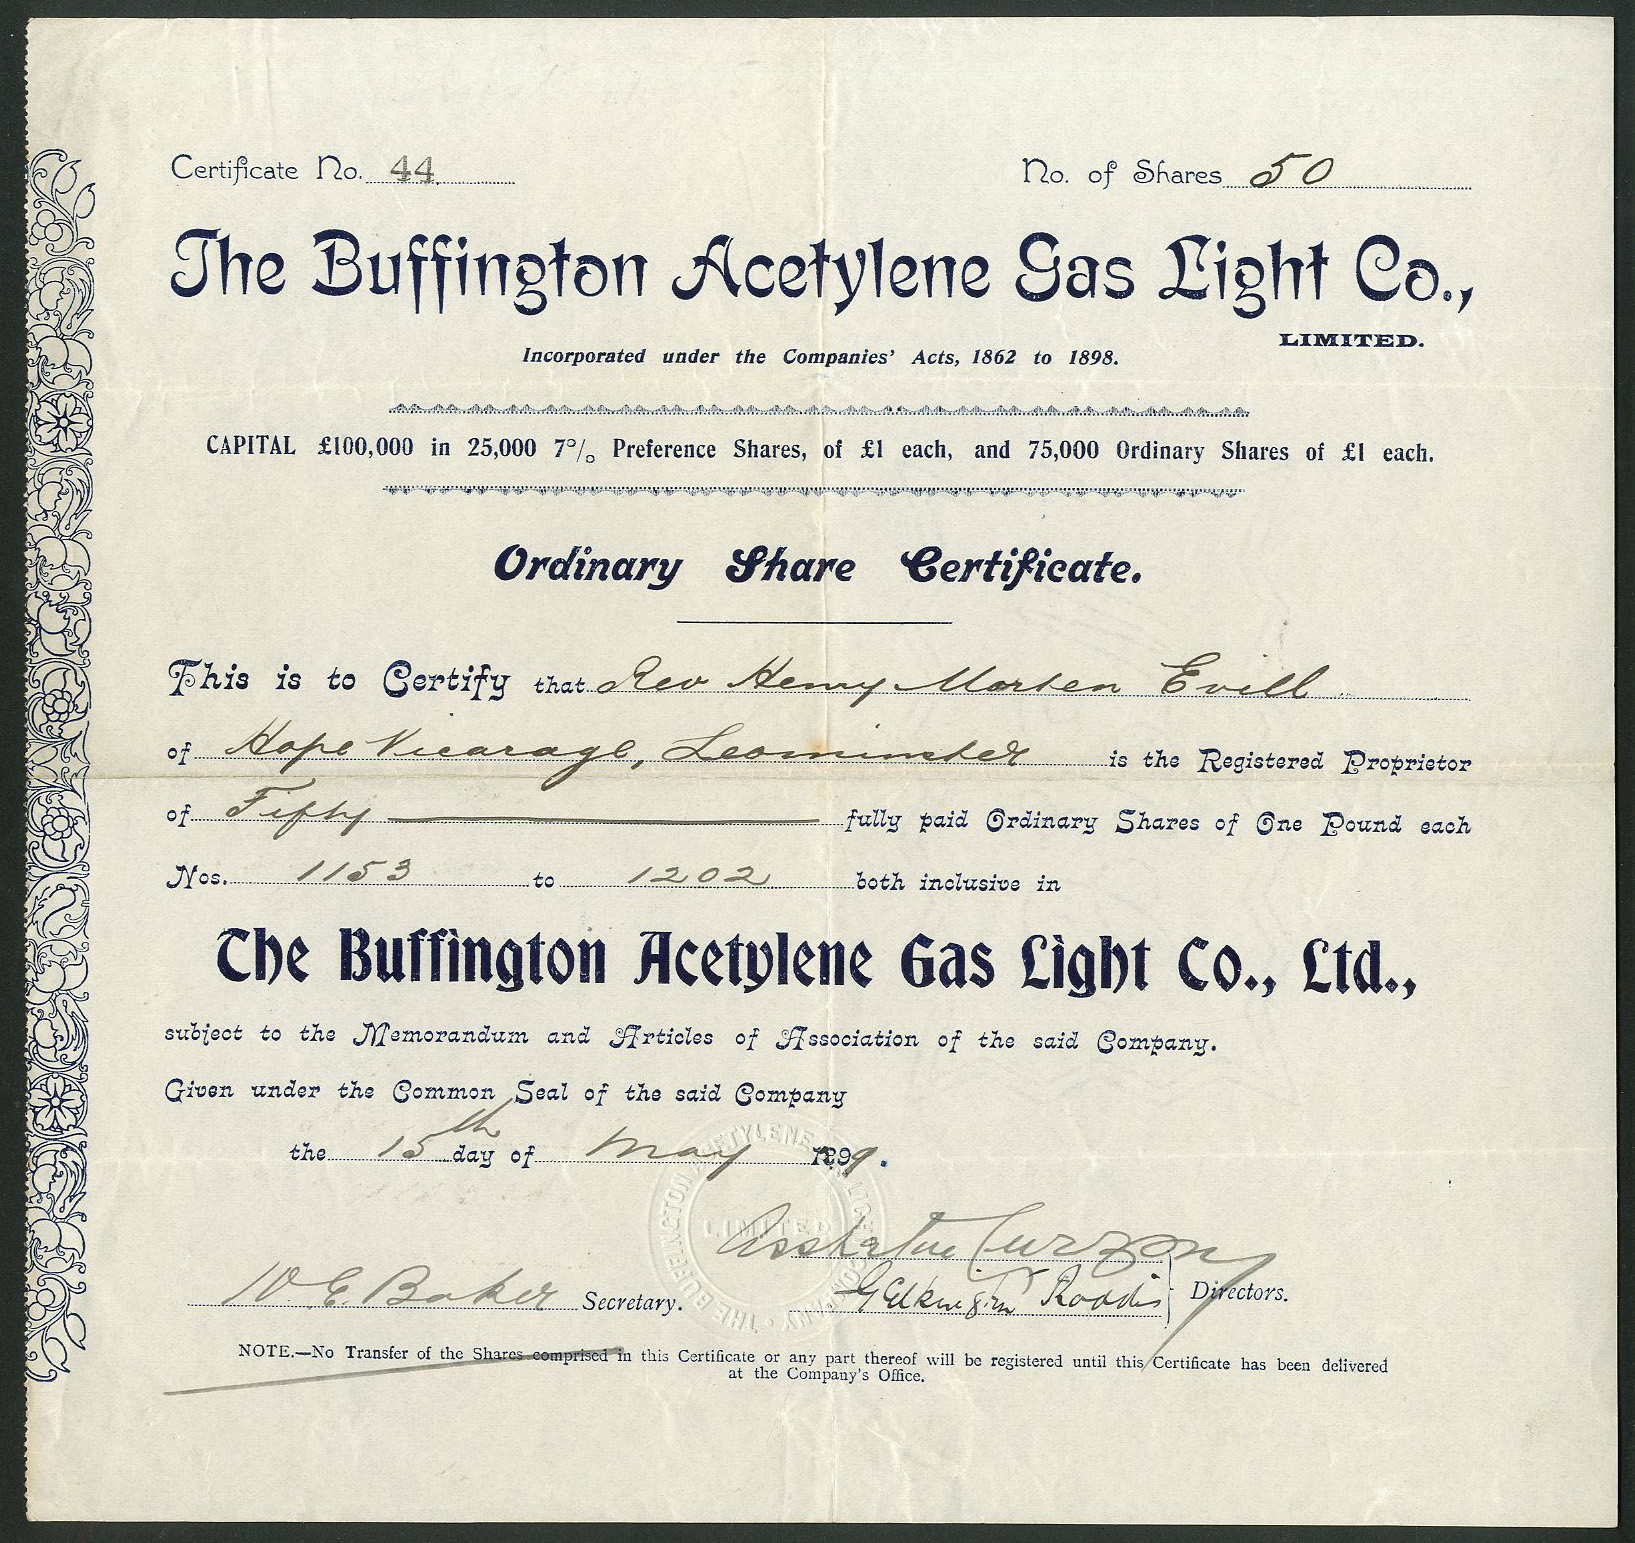 Certificate No. 44
No. of Shares 50
The Buffington Acetylene Gas Light Co.,
LIMITED.
Incorporated under the Companies' Acts, 1862 to 1898.
CAPITAL £100,000 in 25,000 7% Preference Shares, of £1 each, and 75,000 Ordinary Shares of £1 each.
Ordinary Share Certificate.
This is to Certify that Rev Henry Morten Evill
of Hope Vicarage, Leominster is the Registered Proprietor
of Fifty fully paid Ordinary Shares of One Pound each
Nos. 1153 to 1202 both inclusive in
The Buffington Acetylene Gas Light Co., Ltd.,
subject to the Memorandum and Articles of Association of the said Company.
Given under the Common Seal of the said Company
the 15th day of May 1899.
THE BUFFINGTON ACETYLENE GAS LIGHT COMPANY
LIMITED
Assheton Curzon
W. E. Baker Secretary. Directors.
NOTE.—No Transfer of the Shares comprised in this Certificate or any part thereof will be registered until this Certificate has been delivered
at the Company's Office.